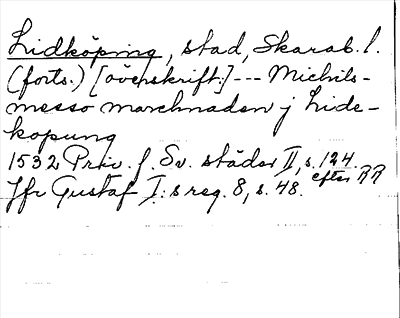 Lidköping, stad, Skarab. l.
(forts.) [överskrift:] --- Michils-
messo marchnaden j Lide-
kopung
1532 Priv. f. Sv. städer II, s. 124.
Jfr Gustaf I:s reg. 8, s. 48. efter RR